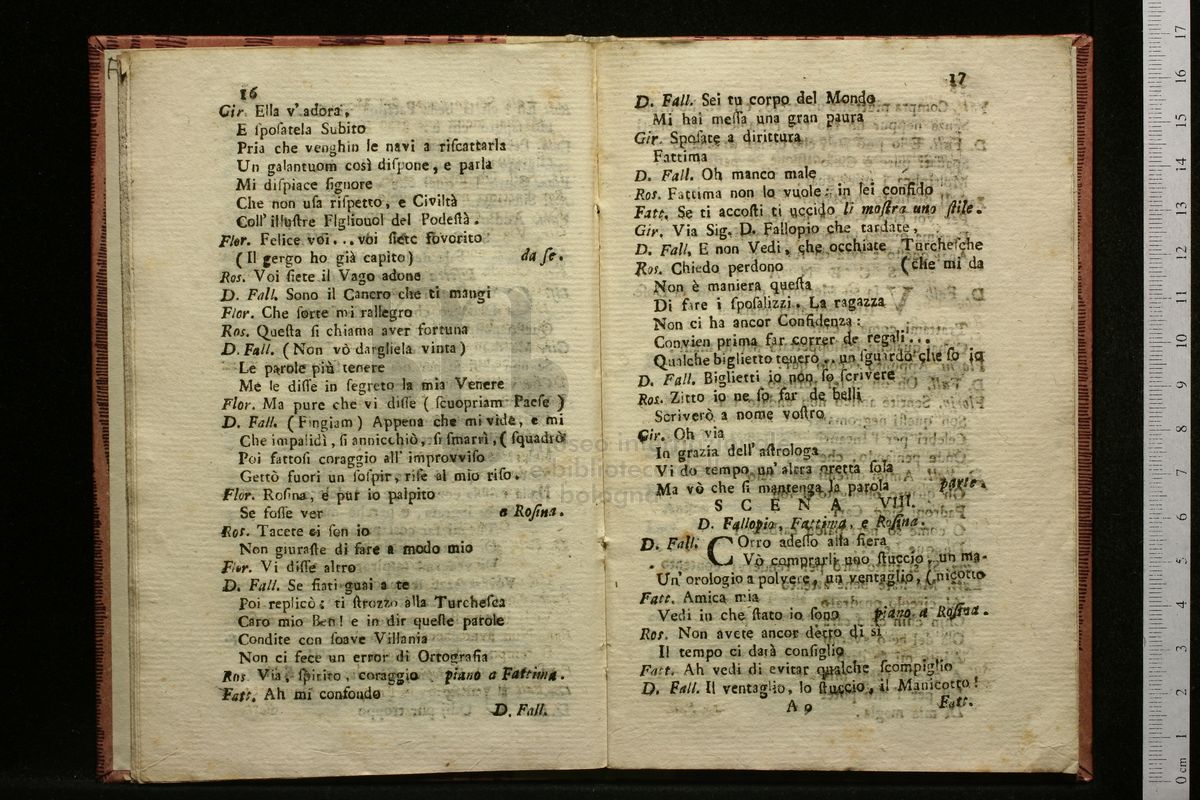 16
Gir. Ella v' adora,
E ſpoſatela Subito
Pria che venghin le navi a riſcattarla
Un galantuom così diſpone, e parla
Mi diſpiace ſignore
Che non uſa riſpetto, e Civiltà
Coll' illuſtre Figliouol del Podeſtà.
Flor. Felice voi... voi ſiete fovorito
( Il gergo ho già capito ) da ſe.
Ros. Voi ſiete il Vago adone
D. Fall. Sono il Cancro che ti mangi
Flor. Che ſorte mi rallegro
Ros. Queſta ſi chiama aver fortuna
D. Fall. ( Non vò dargliela vinta )
Le parole più tenere
Me le diſſe in ſegreto la mia Venere
Flor. Ma pure che vi diſſe ( ſcuopriam Paeſe )
D. Fall. ( Fingiam ) Appena che mi vide, e mi
Che impalidì, ſi annicchiò, ſi ſmarrì, ( ſquadrò
Poi fattoſi coraggio all' improvviſo
Gettò fuori un ſoſpir, riſe al mio riſo.
Flor. Roſina, e pur io palpito
Se foſſe ver a Roſina.
Ros. Tacete ci ſon io
Non giuraſte di fare a modo mio
Flor. Vi diſſe altro
D. Fall. Se fiati guai a te
Poi replicò: ti ſtrozzo alla Turcheſca
Caro mio Ben! e in dir queſte parole
Condite con ſoave Villania
Non ci fece un error di Ortografia
Ros. Via, ſpirito, coraggio piano a Fattima.
Fatt. Ah mi confondo
D. Fall.
17
D. Fall. Sei tu corpo del Mondo
Mi hai meſſa una gran paura
Gir. Spoſate a dirittura
Fattima
D. Fall. Oh manco male
Ros. Fattima non lo vuole: in lei confido
Fatt. Se ti accoſti ti uccido li moſtra uno ſtile.
Gir. Via Sig. D. Fallopio che tardate,
D. Fall. E non Vedi, che occhiate Turcheſche
Ros. Chiedo perdono ( che mi da
Non è maniera queſta
Di fare i ſpoſalizzi. La ragazza
Non ci ha ancor Confidenza:
Convien prima far correr de regali...
Qualche biglietto tenero.. un ſguardo che ſo io
D. Fall. Biglietti io non ſo ſcrivere
Ros. Zitto io ne ſo far de belli
Scriverò a nome voſtro
Gir. Oh via
In grazia dell' aſtrologa
Vi do tempo un' altra oretta ſola
Ma vò che ſi mantenga la parola parte.
SCENA VIII.
D. Fallopio, Fattima, e Roſina.
D. Fall. COrro adeſſo alla fiera
Vò comprarli uno ſtuccio, un ma-
Un' orologio a polvere, un ventaglio, ( nicotto
Fatt. Amica mia
Vedi in che ſtato io ſono piano a Roſina.
Ros. Non avete ancor detto di sì
Il tempo ci darà conſiglio
Fatt. Ah vedi di evitar qualche ſcompiglio
D. Fall. Il ventaglio, lo ſtuccio, il Manicotto!
A 9 Fatt.